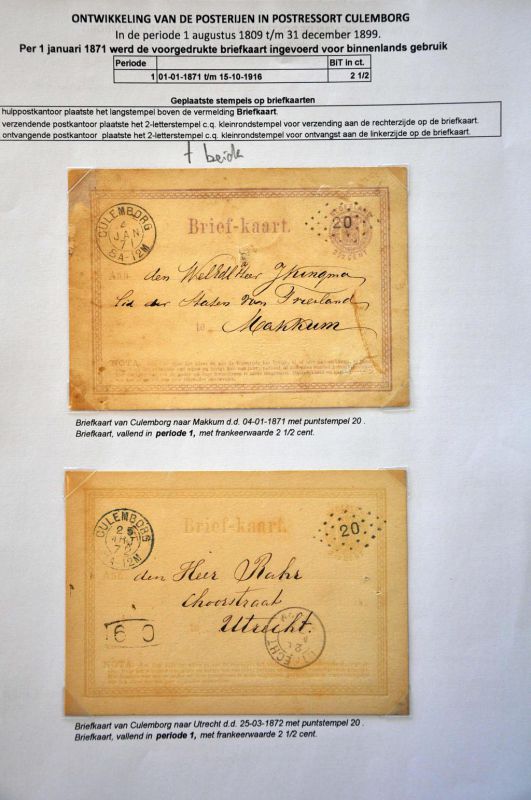 ONTWIKKELING VAN DE POSTERIJEN IN POSTRESSORT CULEMBORG
In de periode 1 augustus 1809 t/m 31 december 1899.
Per 1 januari 1871 werd de voorgedrukte briefkaart ingevoerd voor binnenlands gebruik
Periode BiT in ct.
1 01-01-1871 t/m 15-10-1916 2 1/2
Geplaatste stempels op briefkaarten
hulppostkantoor plaatste het langstempel boven de vermelding Briefkaart.
verzendende postkantoor plaatste het 2-letterstempel c.q. kleinrondstempel voor verzending aan de rechterzijde op de briefkaart.
ontvangende postkantoor plaatste het 2-letterstempel c.q. kleinrondstempel voor ontvangst aan de linkerzijde op de briefkaart.
beide
CULEMBORG
2
JAN
71
8A-12M
Brief-kaart.
20
Aan
den WelEdHeer JKingma
Lid der Staten van Friesland
te
Makkum
NOTA.
Briefkaart van Culemborg naar Makkum d.d. 04-01-1871 met puntstempel 20 .
Briefkaart, vallend in periode 1, met frankeerwaarde 2 1/2 cent.
CULEMBORG
25
72
Brief-kaart.
20
Aan
den Heer Rahr
Choorstraat
te Utrecht.
UTRECHT
NOTA.
Briefkaart van Culemborg naar Utrecht d.d. 25-03-1872 met puntstempel 20 .
Briefkaart, vallend in periode 1, met frankeerwaarde 2 1/2 cent.